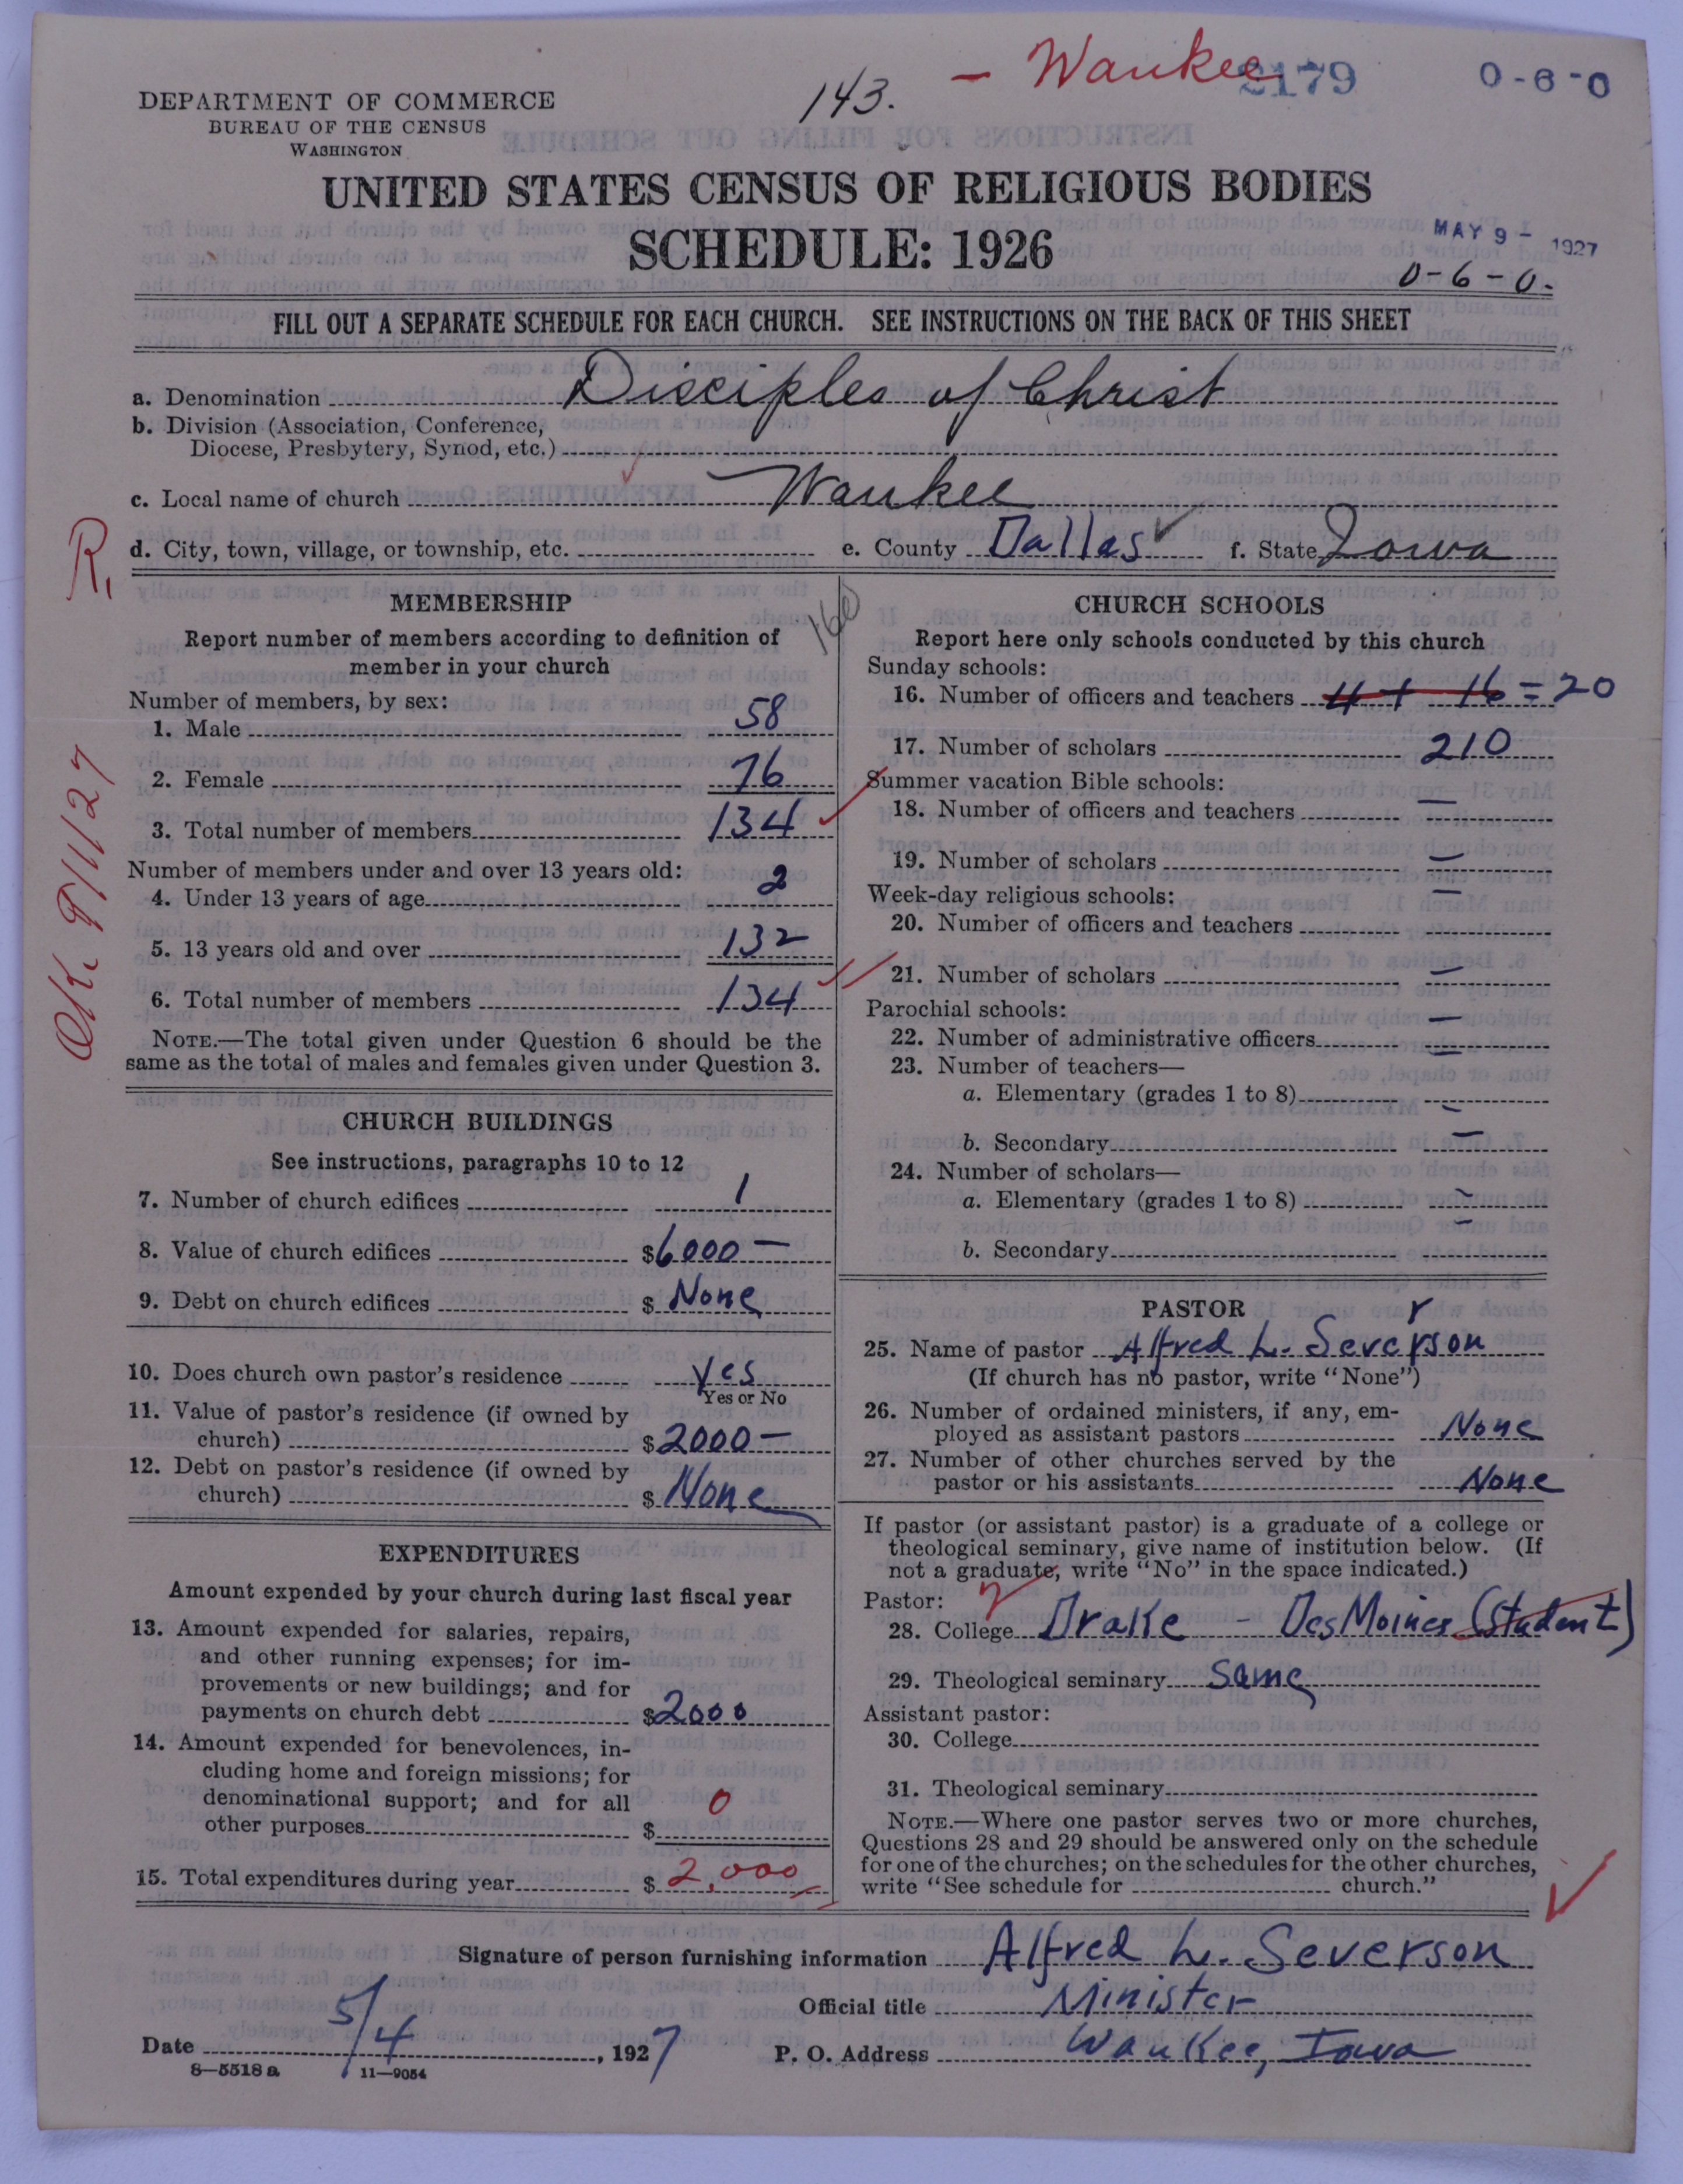 - Wankee
2179
0-6-0
143.
DEPARTMENT OF COMMERCE
BUREAU OF THE CENSUS
WASHINGTON
UNITED STATES CENSUS OF RELIGIOUS BODIES
SCHEDULE: 1926
MAY 9 - 1927
0-6-0.
FILL OUT A SEPARATE SCHEDULE FOR EACH CHURCH. SEE INSTRUCTIONS ON THE BACK OF THIS SHEET
a. Denomination Disciples of Christ
b. Division (Association, Conference,
Diocese, Presbytery, Synod, etc.)
c. Local name of church Waukee
d. City, town, village, or township, etc. e. County Dallas f. State Iowa
R.
OK 9/1/27
MEMBERSHIP
160
Report number of members according to definition of
member in your church
Number of members, by sex:
1. Male 58
2. Female 76
3. Total number of members 134
Number of members under and over 13 years old:
4. Under 13 years of age 2
5. 13 years old and over 132
6. Total number of members 134
NOTE.—The total given under Question 6 should be the
same as the total of males and females given under Question 3.
CHURCH BUILDINGS
See instructions, paragraphs 10 to 12
7. Number of church edifices 1
8. Value of church edifices $6000 —
9. Debt on church edifices $ None
10. Does church own pastor's residence yes
Yes or No
11. Value of pastor's residence (if owned by
church) $2000 —
12. Debt on pastor's residence (if owned by
church) $ None
EXPENDITURES
Amount expended by your church during last fiscal year
13. Amount expended for salaries, repairs,
and other running expenses; for im-
provements or new buildings; and for
payments on church debt $2000
14. Amount expended for benevolences, in-
cluding home and foreign missions; for
denominational support; and for all
other purposes $ 0
15. Total expenditures during year $ 2,000
CHURCH SCHOOLS
Report here only schools conducted by this church
Sunday schools:
16. Number of officers and teachers 4 + 16 = 20
17. Number of scholars 210
Summer vacation Bible schools:
18. Number of officers and teachers —
19. Number of scholars —
Week-day religious schools:
20. Number of officers and teachers —
21. Number of scholars —
Parochial schools:
22. Number of administrative officers —
23. Number of teachers—
a. Elementary (grades 1 to 8) —
b. Secondary —
24. Number of scholars—
a. Elementary (grades 1 to 8) —
b. Secondary —
PASTOR
r
25. Name of pastor Alfred L. Severson
(If church has no pastor, write "None")
26. Number of ordained ministers, if any, em-
ployed as assistant pastors None
27. Number of other churches served by the
pastor or his assistants None
If pastor (or assistant pastor) is a graduate of a college or
theological seminary, give name of institution below. (If
not a graduate, write "No" in the space indicated.)
Pastor:
28. College Drake - Des Moines (Student)
29. Theological seminary Same
Assistant pastor:
30. College
31. Theological seminary
NOTE.—Where one pastor serves two or more churches,
Questions 28 and 29 should be answered only on the schedule
for one of the churches; on the schedules for the other churches,
write "See schedule for church."
Signature of person furnishing information Alfred L. Severson
Official title Minister
Date 5/4, 1927 P. O. Address Waukee, Iowa
8—5518 a 11—9054